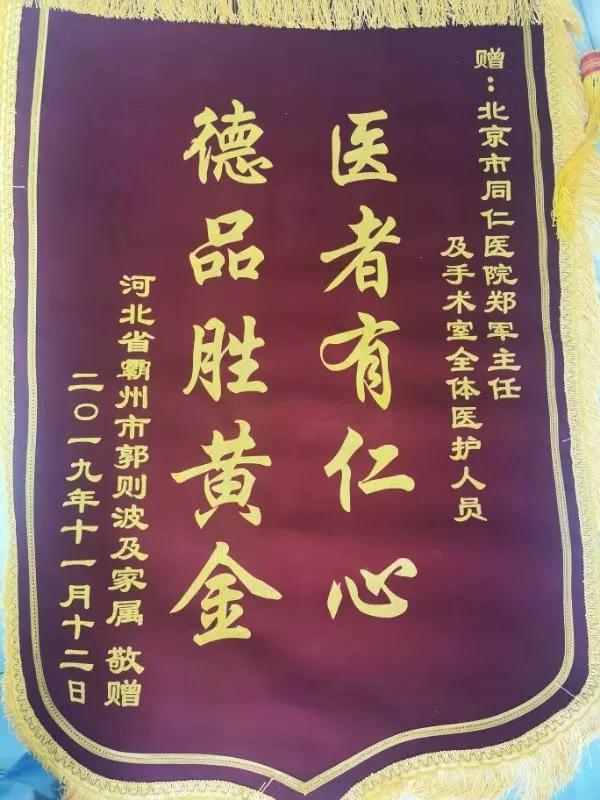 赠：北京市同仁医院郑军主任
及手术室全体医护人员
医者有仁心
德品胜黄金
河北省霸州市郭则波及家属 敬赠
二〇一九年十一月十二日